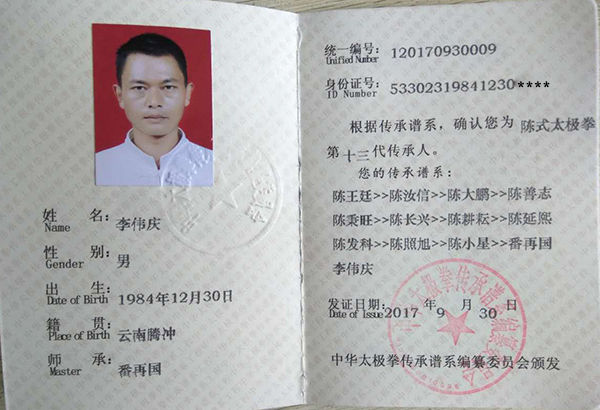 姓 名: 李伟庆
Name
性 别: 男
Gender
出 生: 1984年12月30日
Date of Birth
籍 贯: 云南腾冲
Place of Birth
师 承: 番再国
Master
统一编号: 120170930009
Unified Number
身份证号: 53302319841230****
ID Number
根据传承谱系,确认您为 陈式太极拳
第 十三 代传承人。
您的传承谱系:
陈王廷>>陈汝信>>陈大鹏>>陈善志
陈秉旺>>陈长兴>>陈耕耘>>陈延熙
陈发科>>陈照旭>>陈小星>>番再国
李伟庆
发证日期: 2017 年 9 月 30 日
Date of Issue
中华太极拳传承谱系编纂委员会颁发
中华太极拳传承谱系编纂委员会